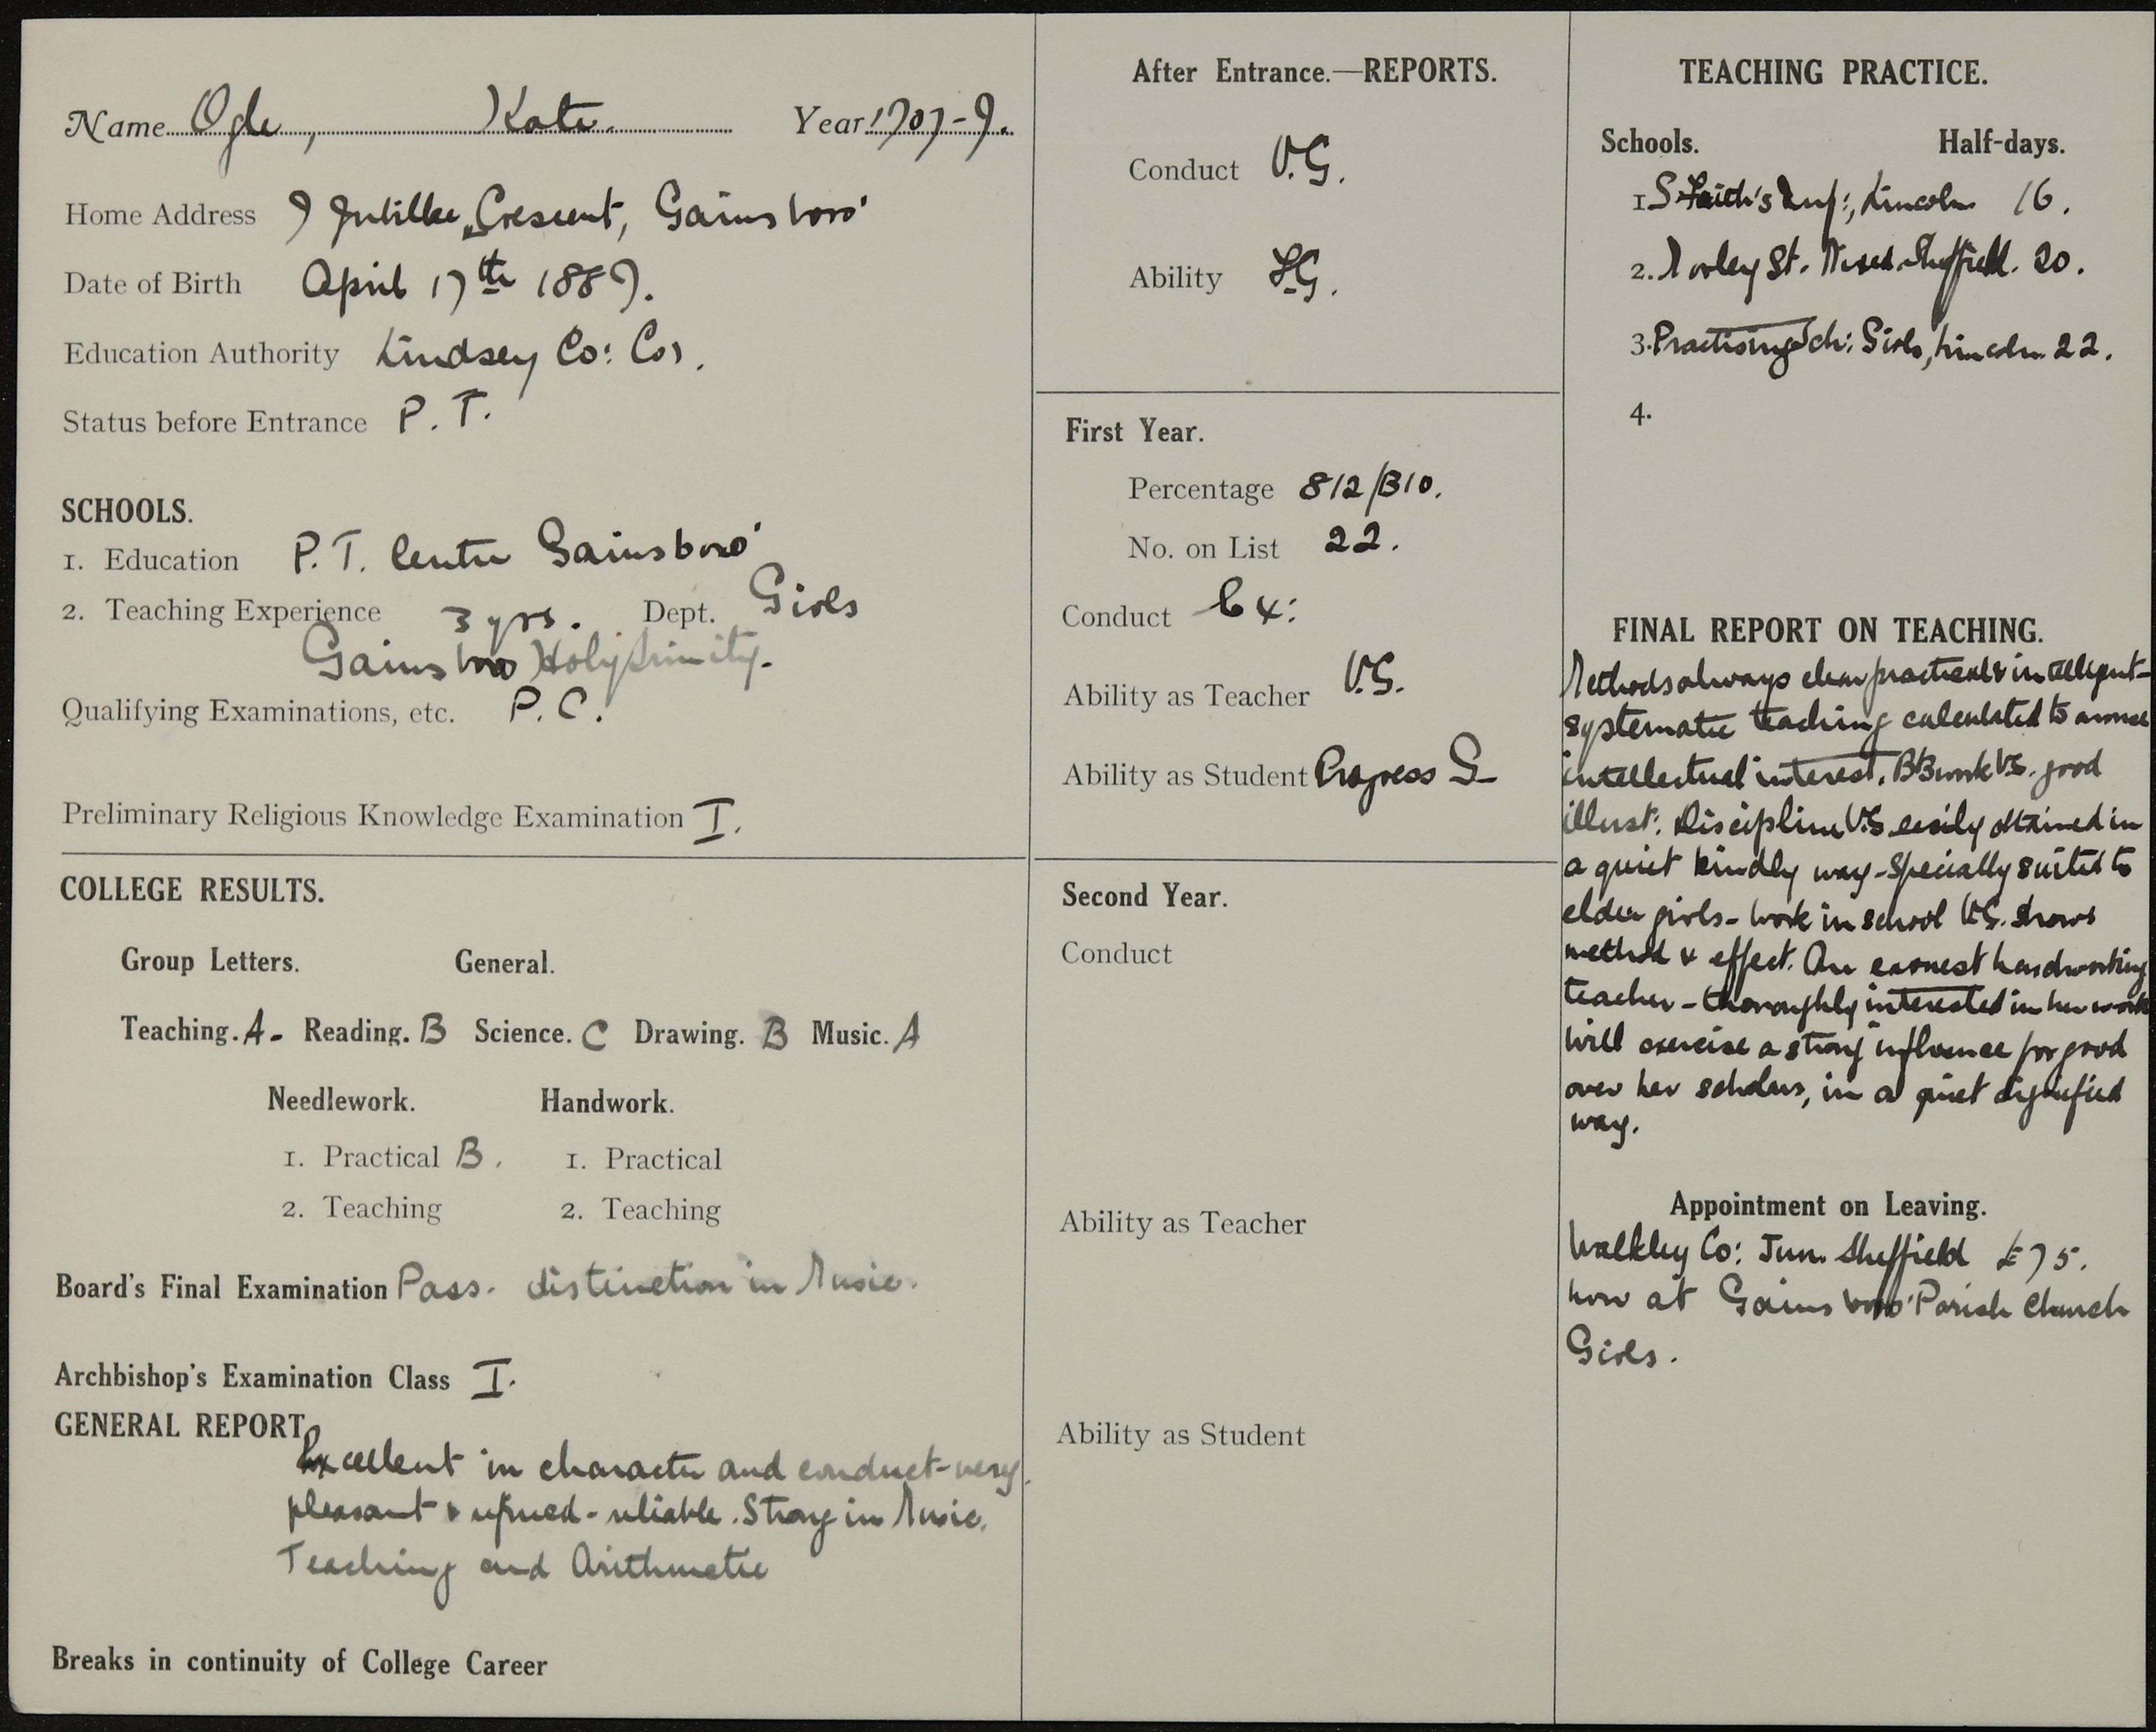 Name Ogle, Kate. Year 1907-9.
Home Address 9 Jubilee Crescent, Gainsboro'
Date of Birth April 17th 1889.
Education Authority Lindsey Co: Co,
Status before Entrance P.T.
SCHOOLS.
1. Education P.T. Centre Gainsboro'
2. Teaching Experience 3 yrs. Dept. Girls
Gainsboro Holy Trinity.
Qualifying Examinations, etc. P.C.
Preliminary Religious Knowledge Examination I.
COLLEGE RESULTS.
Group Letters. General.
Teaching. A- Reading. B Science. C Drawing. B Music. A
Needlework. Handwork.
1. Practical B. 1. Practical
2. Teaching 2. Teaching
Board's Final Examination Pass. distinction in Music.
Archbishop's Examination Class I.
GENERAL REPORT
Excellent in character and conduct - very
pleasant & refined - reliable. Strong in Music.
Teaching and Arithmetic
Breaks in continuity of College Career
After Entrance.—REPORTS.
Conduct V.G.
Ability F.G.
First Year.
Percentage 812/1310.
No. on List 22.
Conduct Ex:
Ability as Teacher V.G.
Ability as Student Progress G-
Second Year.
Conduct
Ability as Teacher
Ability as Student
TEACHING PRACTICE.
Schools. Half-days.
1. S. Faith's Inf:, Lincoln 16.
2. Morley St. Mixed Sheffield. 20.
3. Practising Sch: Girls, Lincoln 22.
4.
FINAL REPORT ON TEACHING.
Methods always clear practical & intelligent -
systematic teaching calculated to arouse
intellectual interest. BB work V.G. good
illust: Discipline V.G. easily obtained in
a quiet kindly way - specially suited to
elder girls - work in school V.G. shows
method & effect. An earnest hardworking
teacher - thoroughly interested in her work
will exercise a strong influence for good
over her scholars, in a quiet dignified
way.
Appointment on Leaving.
Walkley Co: Jun. Sheffield £75.
now at Gainsboro' Parish Church
Girls.